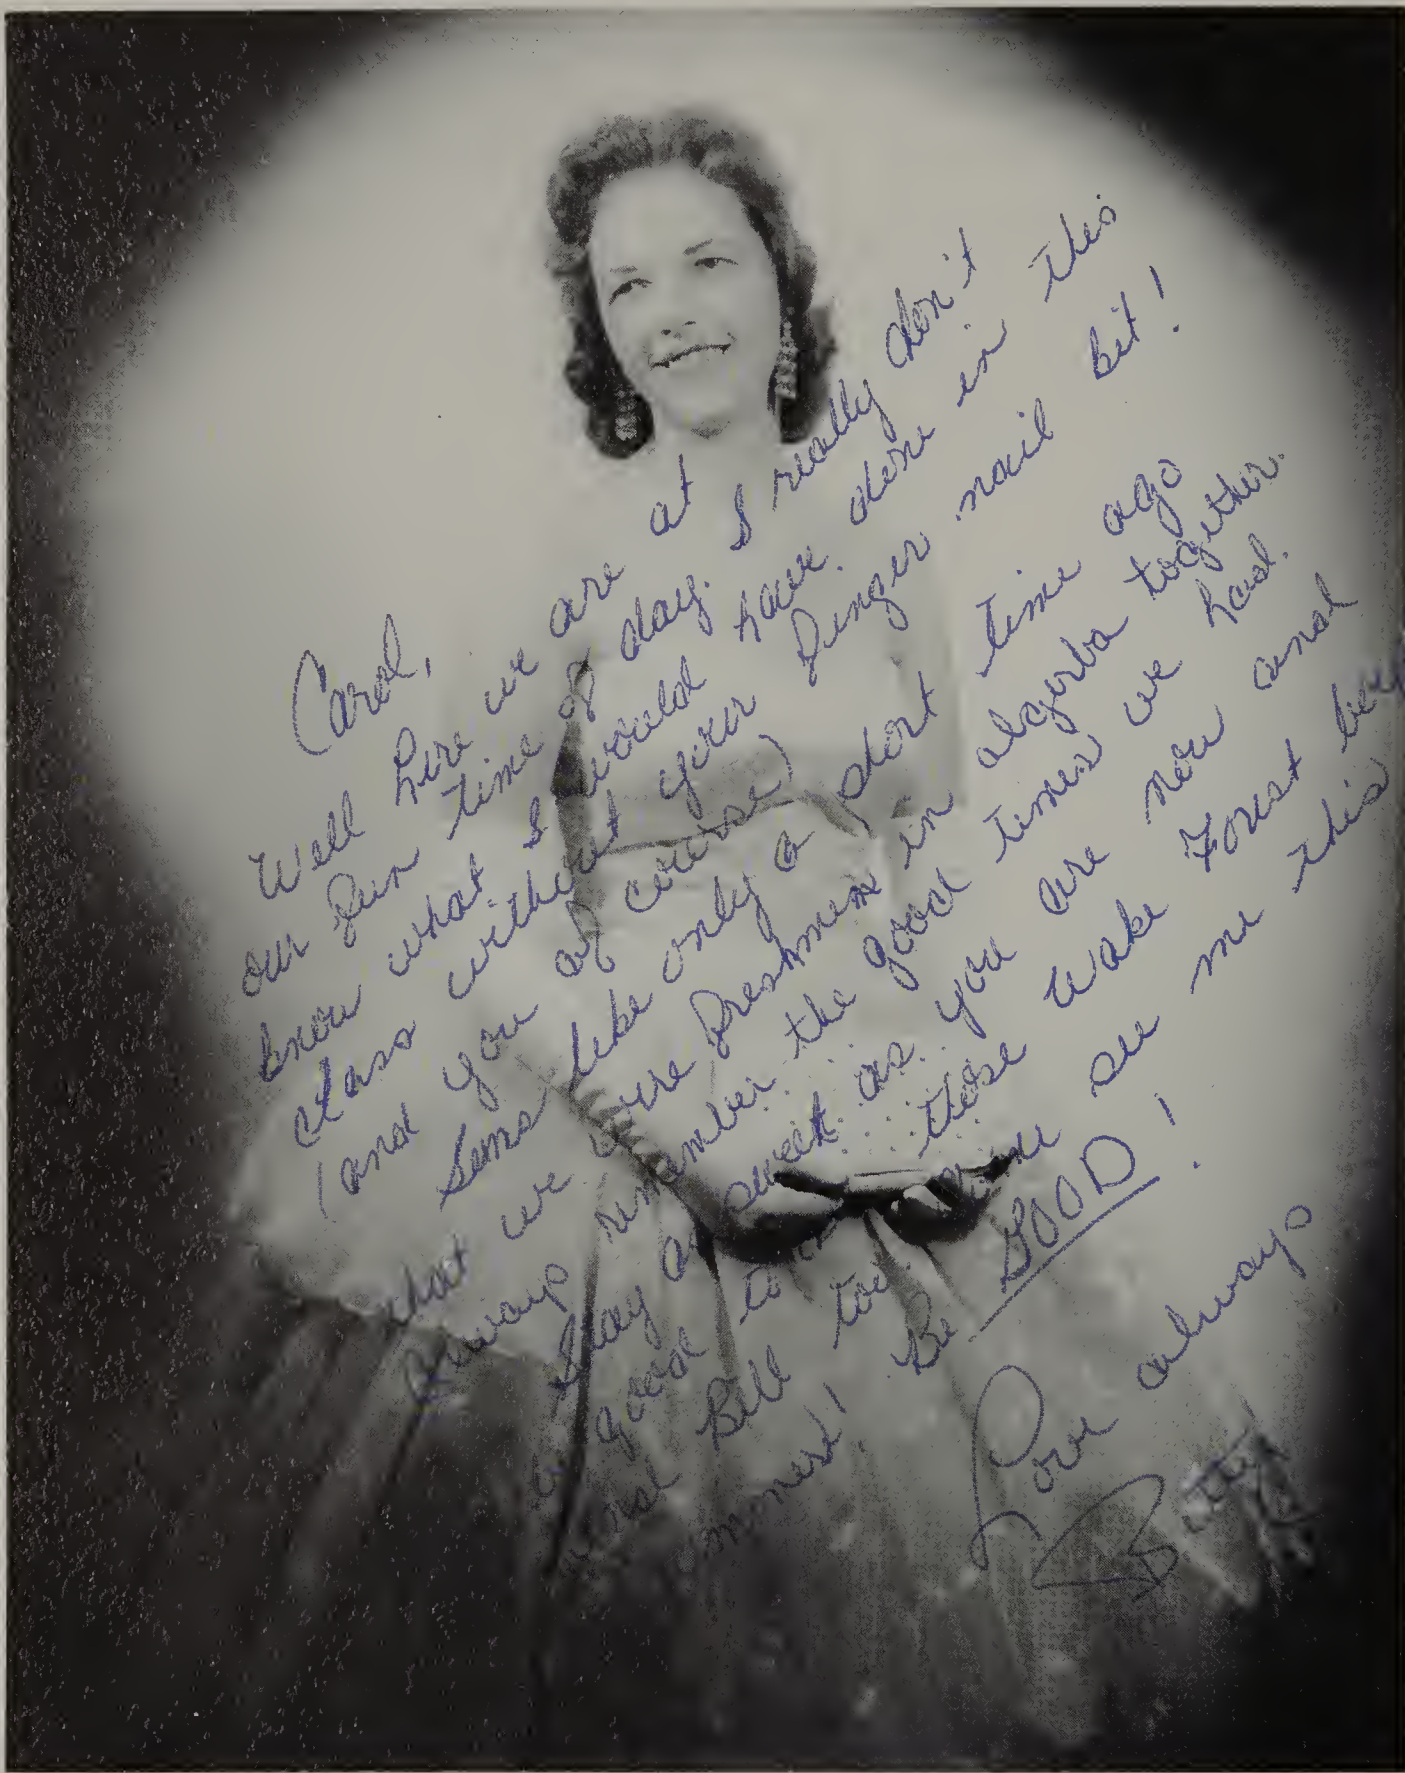 Carol,
Well here we are at
our fun time of day. I really don't
know what I would have done in this
class without your finger nail bit!
(and you of course)
Sems like only a short time ago
that we were freshmen in algerba together.
Always remember the good times we had.
Stay as sweet as you are now and
be good to those Wake Forest
and Bill too. Come see me this
Be GOOD!
Love always
Betty